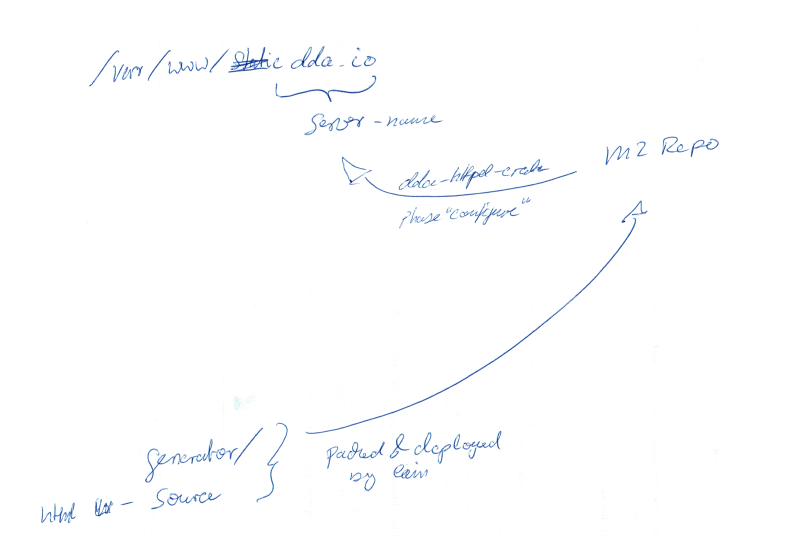 /var/www/ static dda.io
server-name
M2 Repo
dda-httpd-crate
phase "configure"
generator/
html - source
packed & deployed
by lein